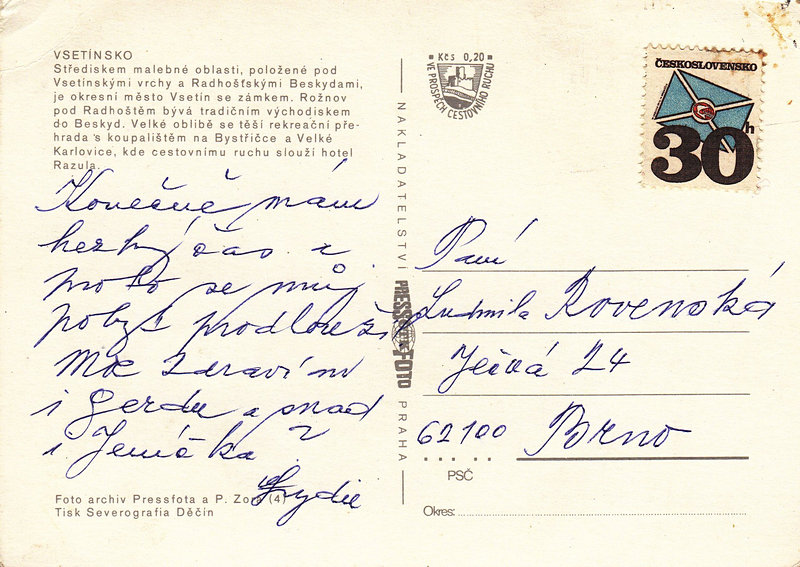 VSETÍNSKO
Střediskem malebné oblasti, položené pod
Vsetínskými vrchy a Radhošťskými Beskydami,
je okresní město Vsetín se zámkem. Rožnov
pod Radhoštěm bývá tradičním východiskem
do Beskyd. Velké oblibě se těší rekreační pře-
hrada s koupalištěm na Bystřičce a Velké
Karlovice, kde cestovnímu ruchu slouží hotel
Razula.
Konečně mám
hezký čas a
proto se můj
pobyt prodlouží
Moc zdraví
i Gerdu a snad
i
Lydie
Foto archiv Pressfota a P. Zora (4)
Tisk Severografia Děčín
Kčs 0,20
VE PROSPĚCH CESTOVNÍHO RUCHU
NAKLADATELSTVÍ PRESSFOTO PRAHA
ČESKOSLOVENSKO
30h
Paní
Ludmila Rovenská
24
62100 Brno
PSČ
Okres: